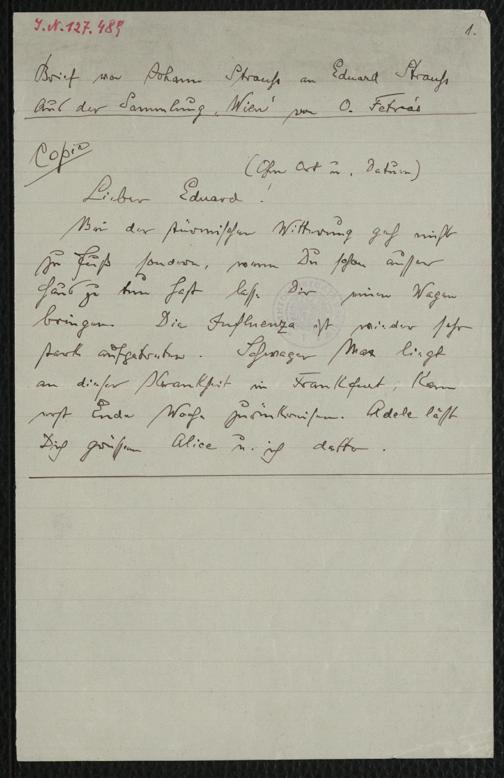 J.N. 127.485
1.
Brief von Johann Strauss an Eduard Strauss
Aus der Sammlung „Wien" von O. Fetrás
Copie
(Ohne Ort u. Datum)
Lieber Eduard!
Bei der stürmischen Witterung geh nicht
zu Fuß sondern, wenn Du schon ausser
Haus zu tun hast lasse Dir einen Wagen
bringen. Die Influenza ist wieder sehr
stark aufgetreten. Schwager Max liegt
an dieser Krankheit in Frankfurt, kann
erst Ende Woche zurückreisen. Adele läßt
Dich grüssen Alice u. ich detto.